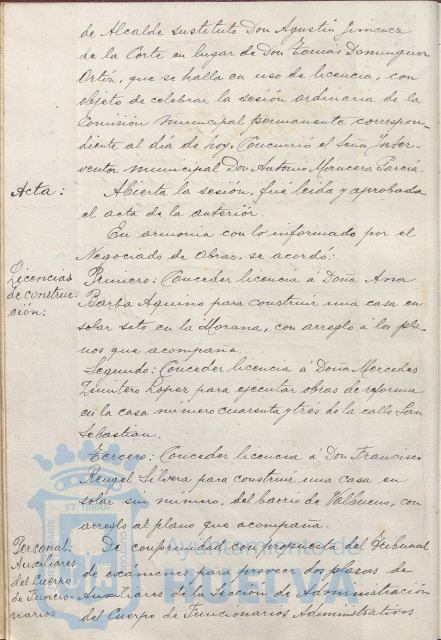 de Alcalde sustituto Don Agustin Jimenez
de la Corte en lugar de Don Tomás Dominguez
Ortiz, que se halla en uso de licencia, con
objeto de celebrar la sesión ordinaria de la
Comisión municipal permanente correspon-
diente al dia de hoy. Concurrió el Señor Inter-
ventor municipal Don Antonio García.
Acta:
Abierta la sesión, fué leida y aprobada
el acta de la anterior.
En armonía con lo informado por el
Negociado de Obras, se acordó:
Licencias
de construc-
ción:
Primero: Conceder licencia á Doña Ana
Borba Aquino para construir una casa en
solar sito en la Morana, con arreglo a los pla-
nos que acompaña.
Segundo: Conceder licencia á Doña Mercedes
Quintero Lopez para ejecutar obras de reforma
en la casa número cuarenta y tres de la calle San
Sebastian.
Tercero: Conceder licencia á Don Francisco
Rengel Silvera para construir una casa en
solar sin número, del barrio de Valbueno, con
arreglo al plano que acompaña.
Personal:
Auxiliares
del Cuerpo
de Funcio-
narios
De conformidad con propuesta del Tribunal
de exámenes para proveer dos plazas de
Auxiliares de la Sección de Administración
del Cuerpo de Funcionarios Administrativos
Ayuntamiento de
HUELVA